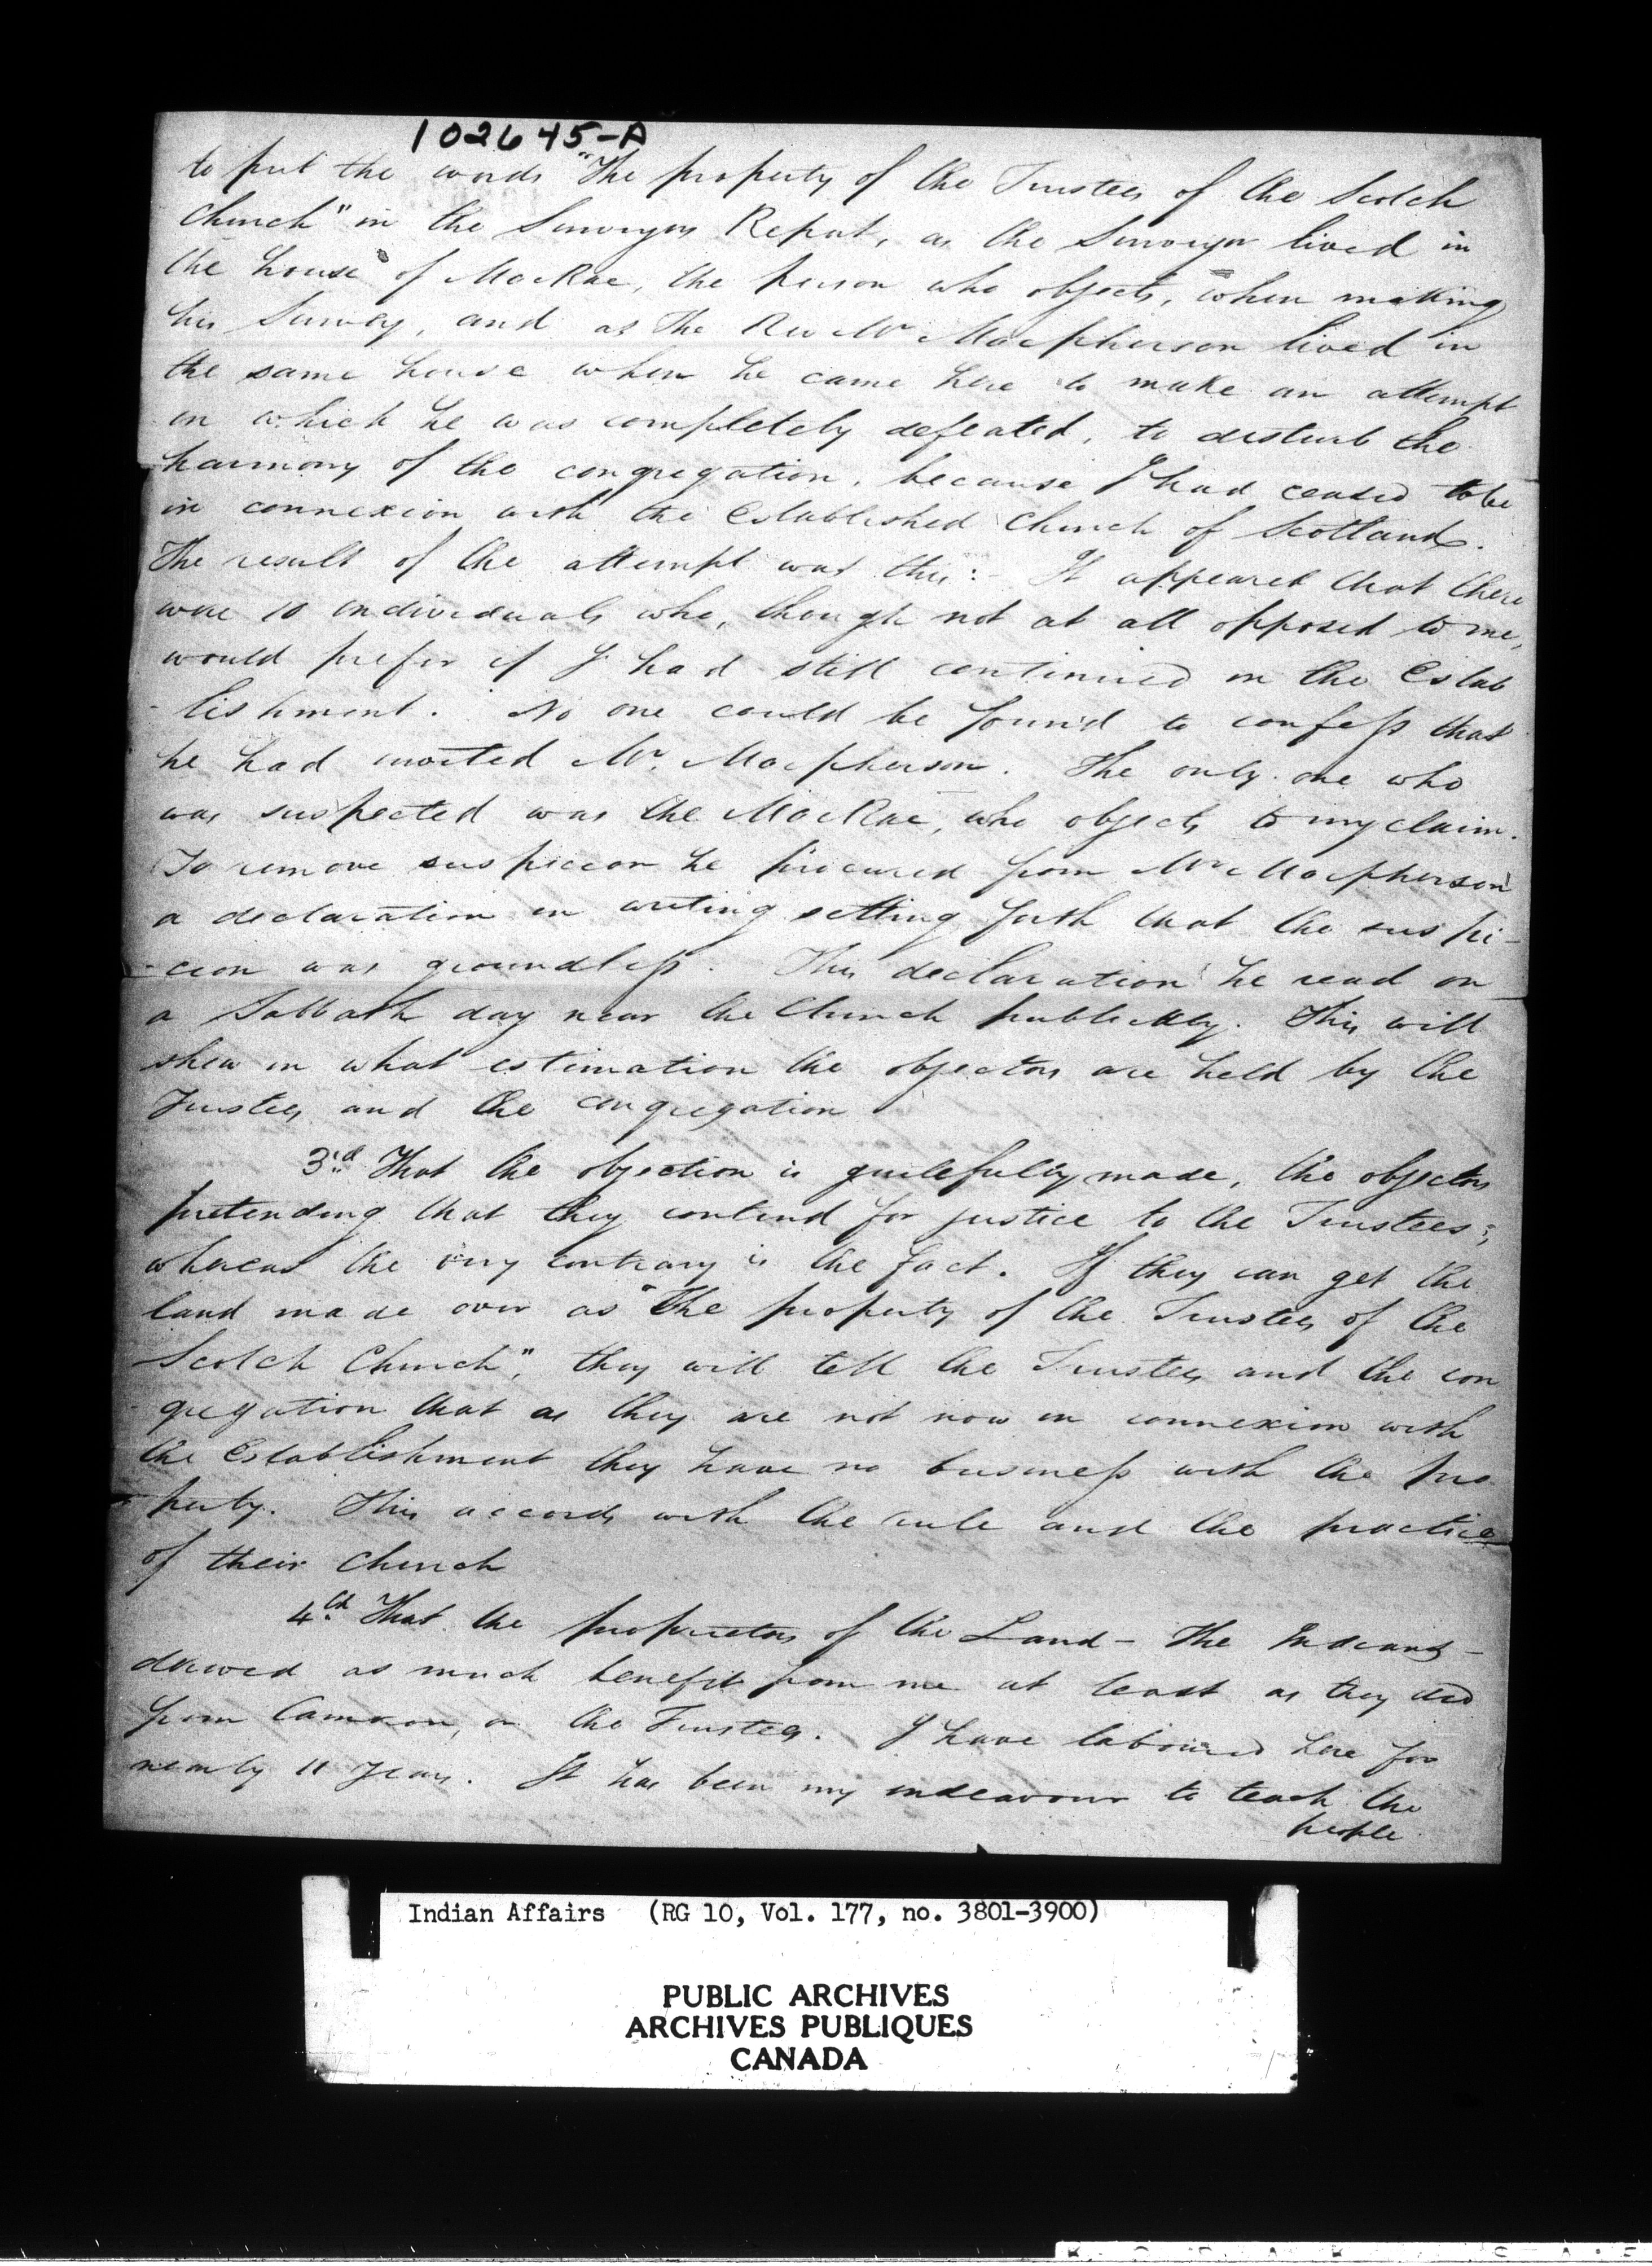 102645-A
to put the words "The property of the Trustees of the Scotch
Church" in the Surveyors Report, as the Surveyor lived in
the house of MacRae, the person who objects, when making
his Survey, and as the Rev Mr Macpherson lived in
the same house when he came here to make an attempt
in which he was completely defeated, to disturb the
harmony of the congregation, because I had ceased to be
in connexion with the Established Church of Scotland.
The result of the attempt was this:- It appeared that there
were 10 individuals who, though not at all opposed to me,
would prefer if I had still continued in the Estab
-lishment. No one could be found to confess that
he had invited Mr. Macpherson. The only one who
was suspected was the MacRae, who objects to my claim.
To remove suspicion he procured from Mr Macpherson
a declaration in writing setting forth that the suspi-
-cion was groundless. This declaration he read on
a Sabbath day near the Church publickly. This will
shew in what estimation the objectors are held by the
Trustees and the congregation
3rd. That the objection is guilefully made, the objectors
pretending that they contend for justice to the Trustees;
whereas the very contrary is the fact. If they can get the
land made over as "The property of the Trustees of the
Scotch Church", they will tell the Trustees and the con
-gregation that as they are not now in connexion with
the Establishment they have no business with the pro
-perty. This accords with the rule and the practice
of their Church
4th. That the proprietors of the Land - the Indians -
derived as much benefit from me at least as they did
from Cameron, or the Trustees. I have laboured here for
nearly 11 years. It has been my endeavour to teach the
people
Indian Affairs (RG 10, Vol. 177, no. 3801-3900)
PUBLIC ARCHIVES
ARCHIVES PUBLIQUES
CANADA